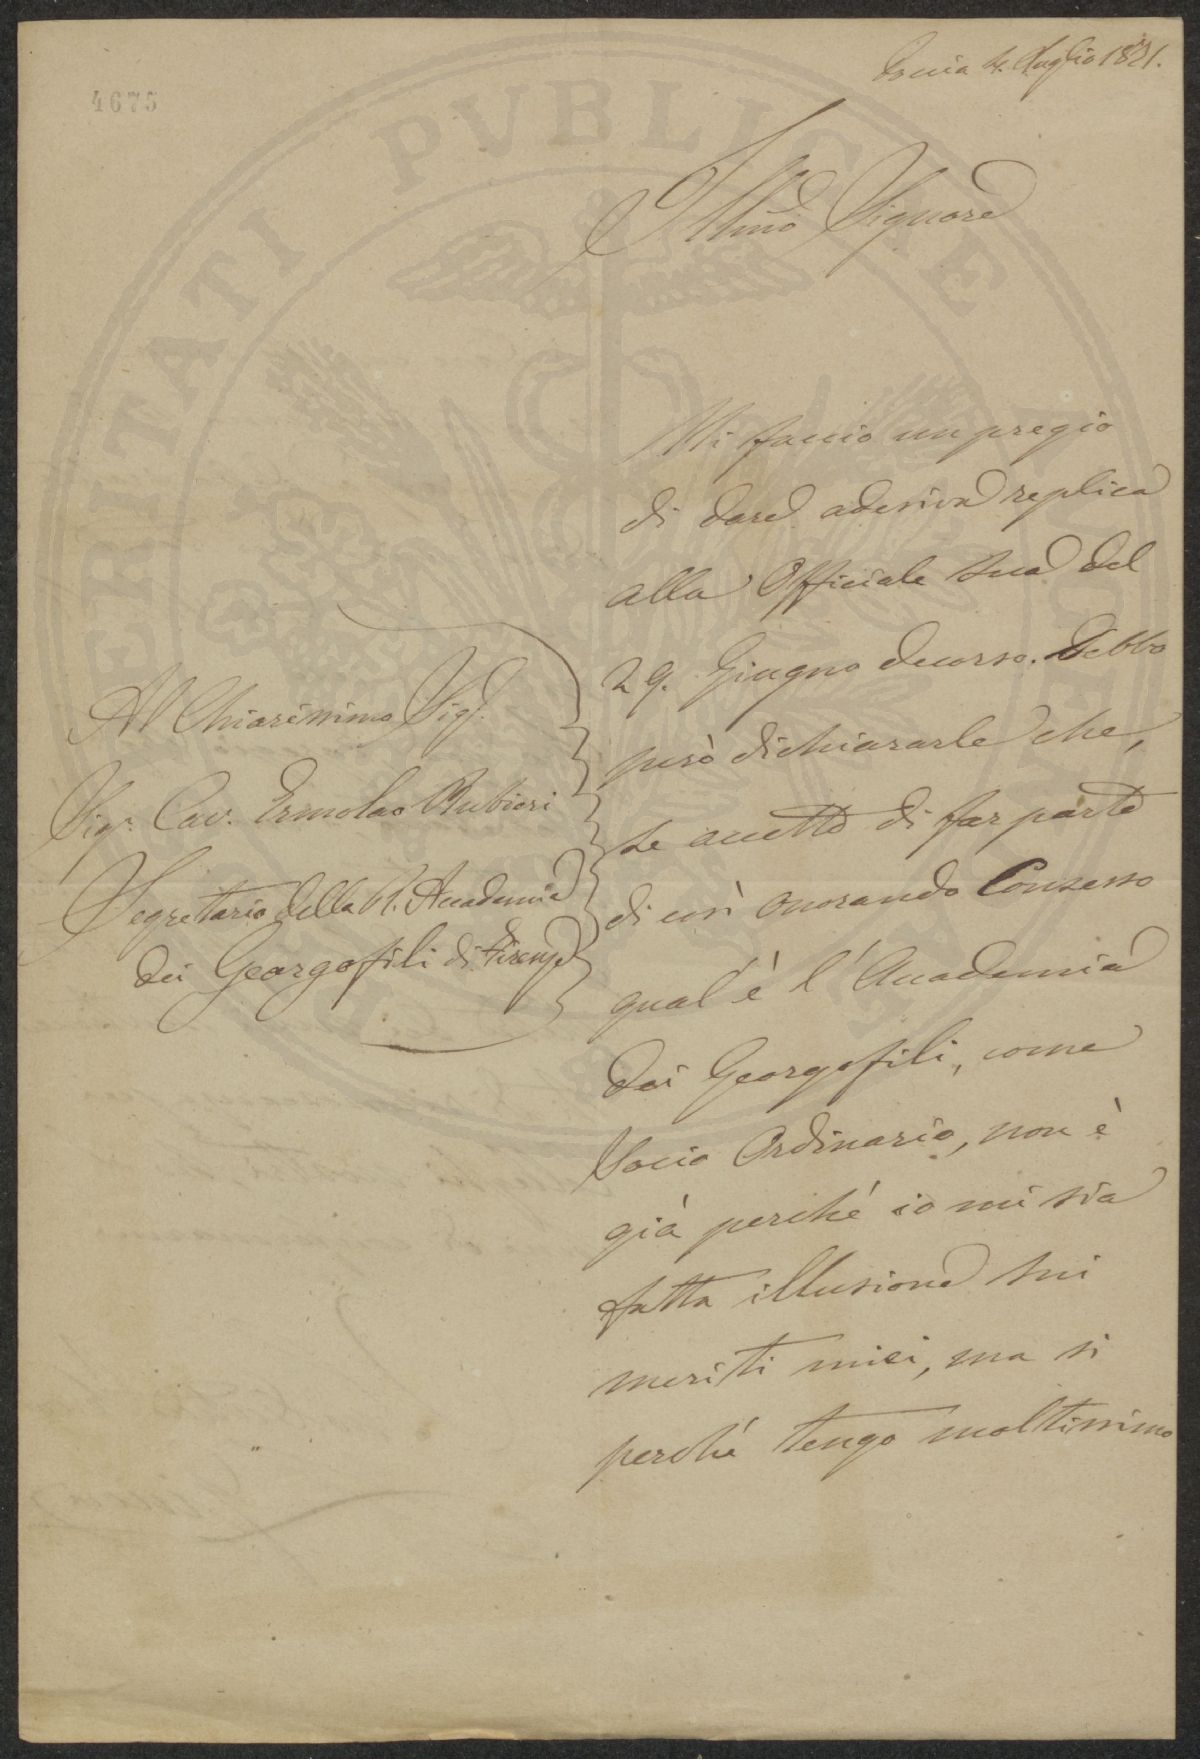 4675
4. Luglio 1871.
Illmo Signore
Mi faccio un pregio
di dare adesiva replica
alla Officiale Sua del
29. Giugno decorso. Debbo
però dichiararle che,
se accetto di far parte
di così onorando Consesso
qual'è l'Accademia
dei Georgofili, come
Socio Ordinario, non è
già perché io mi sia
fatta illusione sui
meriti miei, ma si
perché tengo moltissimo
Al Chiarissimo Sigr.
Sigr. Cav. Ermolao Rubieri
Segretario della R. Accademia
dei Georgofili di Firenze
PVBLICAE